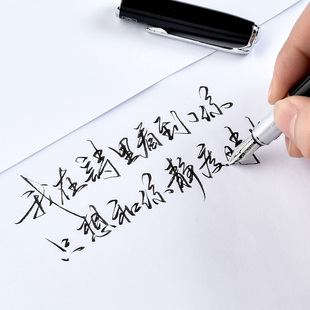 我在诗里看到你
只想和你静度时